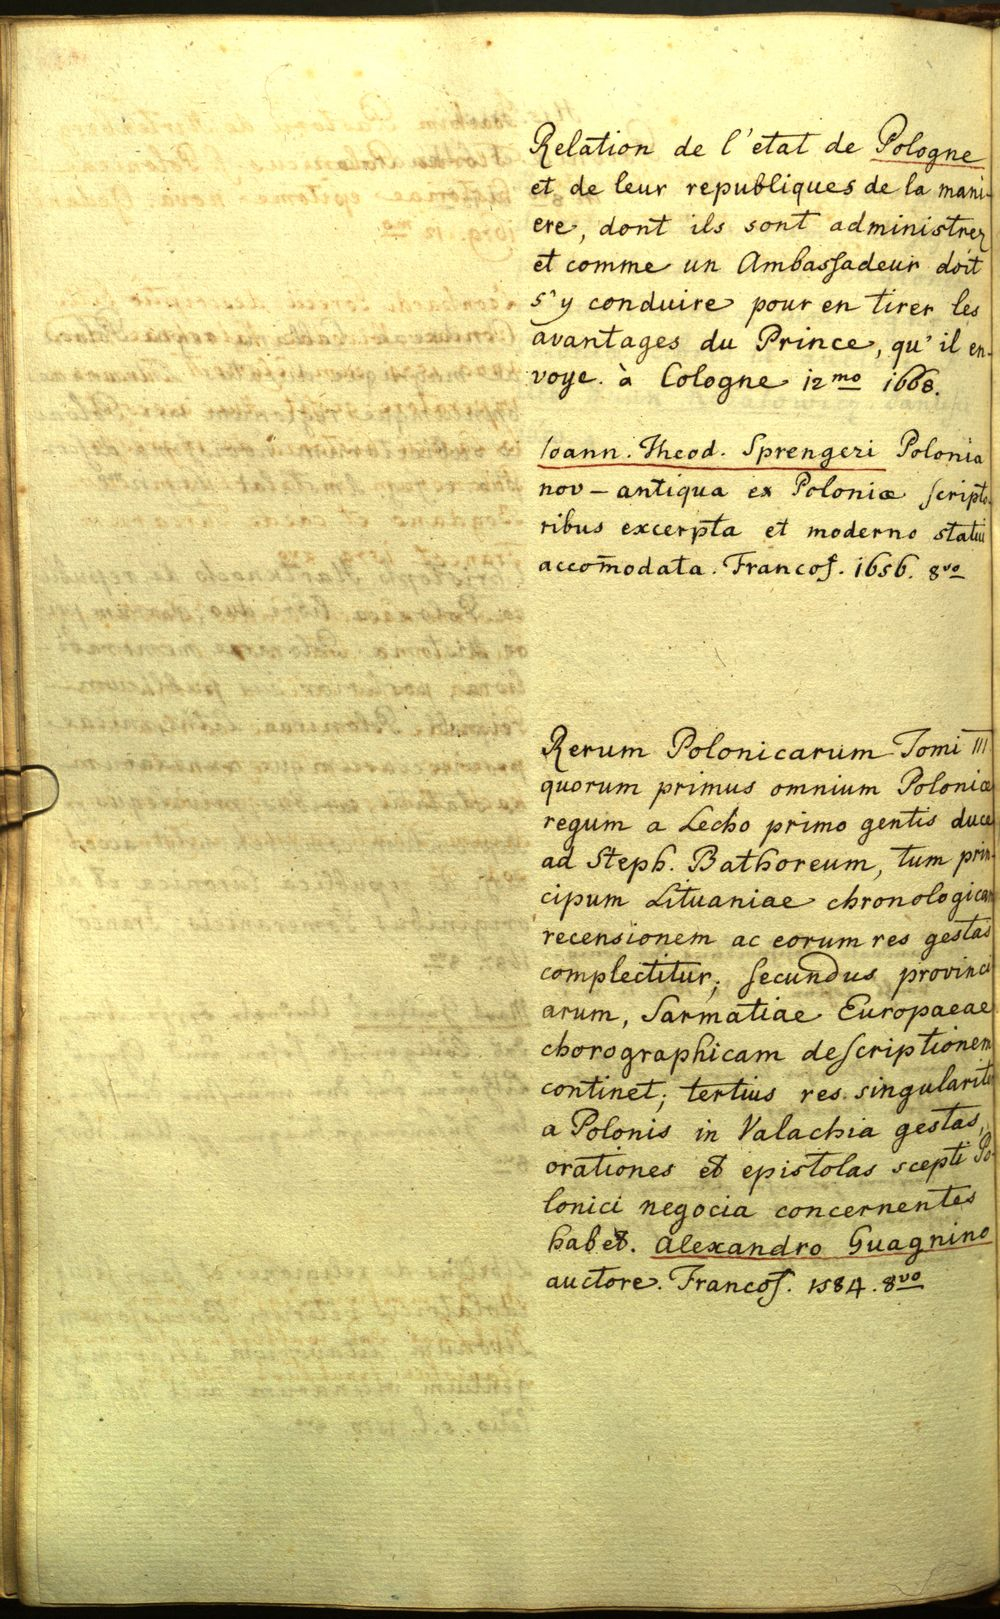 Relation de l'etat de Pologne
et de leur republiques de la mani-
ere, dont ils sont administrez
et comme un Ambassadeur doit
s'y conduire pour en tirer les
avantages du Prince, qu'il en-
voye. à Cologne 12mo 1668.
Ioann. Theod. Sprengeri Polonia
nov-antiqua ex Poloniæ scripto-
ribus excerpta et moderno statui
accom̄odata. Francof. 1656. 8vo
Rerum Polonicarum Tomi III
quorum primus omnium Poloniæ
regum a Lecho primo gentis duce
ad Steph. Bathoreum, tum prin-
cipum Lituaniae chronologicam
recensionem ac eorum res gestas
complectitur; secundus provinci
arum, Sarmatiae Europaeae
chorographicam descriptionem
continet; tertius res singularite
a Polonis in Valachia gestas,
orationes et epistolas scepti Po-
lonici negocia concernentes
habet. Alexandro Guagnino
auctore. Francof. 1584. 8vo